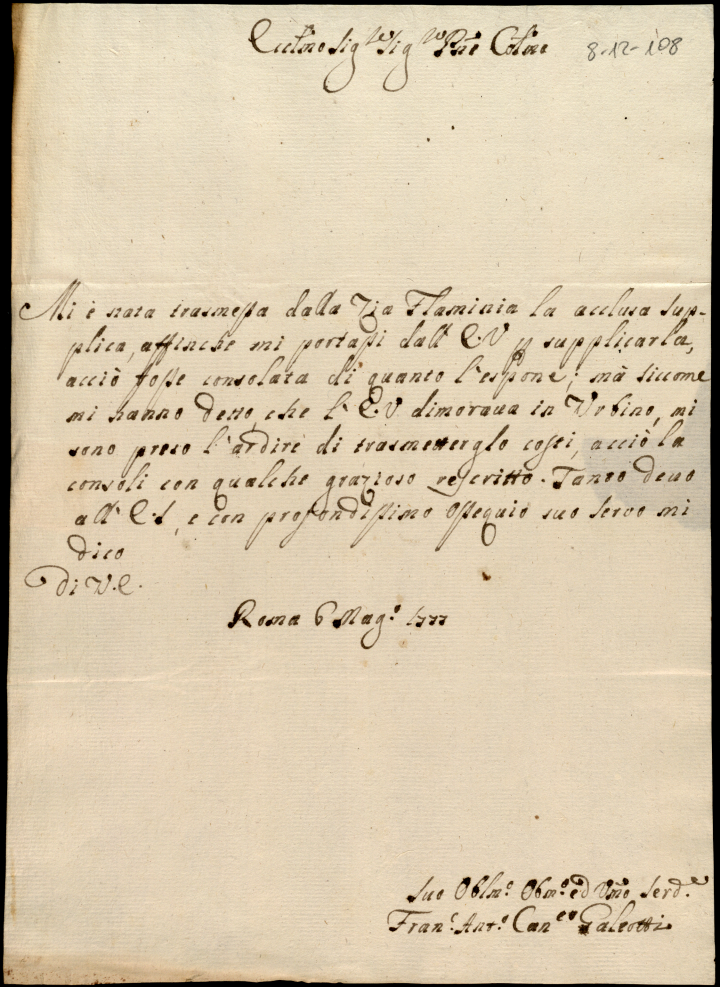 Eccl̃mo Sig.re Sig.re Prñe Col̃mo
8-12-108
Mi è stata trasmessa dalla Via Flaminia la acclusa sup-
plica, affinche mi portassi dall' E.V. p supplicarla,
acciò fosse consolata di quanto l'espone; mà siccome
mi hanno detto, che l'E.V dimoraua in Urbino, mi
sono preso l'ardire di trasmetterglo costi, acciò la
consoli con qualche grazioso rescritto. Tanto deuo
all' E.S, e con profondissimo Ossequio suo Servo mi
dico
Di V.E.
Roma 6 Mag.o 1777
Suo Obl̃mo Obm̃o ed Um̃o Serd.e
Fran.c Ant.o Can.co Galeotti